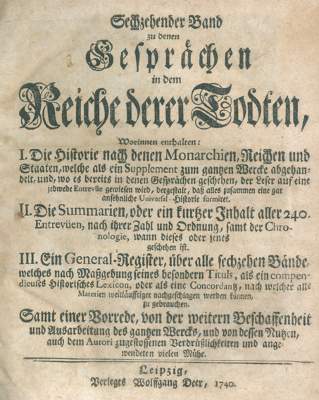 Sechzehender Band
zu denen
Gesprächen
in dem
Reiche derer Todten,
Worinnen enthalten:
I. Die Historie nach denen Monarchien, Reichen und
Staaten, welche als ein Supplement zum gantzen Wercke abgehan-
delt, und, wo es bereits in denen Gesprächen geschehen, der Leser auf eine
jedwede Entrevûe gewiesen wird, dergestalt, daß alles zusammen eine gar
ansehnliche Universal-Historie formiret.
II. Die Summarien, oder ein kurtzer Inhalt aller 240.
Entrevûen, nach ihrer Zahl und Ordnung, samt der Chro-
nologie, wann dieses oder jenes
geschehen ist.
III. Ein General-Register, über alle sechzehen Bände,
welches nach Maßgebung seines besondern Tituls, als ein compen-
dieuses Historisches Lexicon, oder als eine Concordantz, nach welcher alle
Materien weitläufftiger nachgeschlagen werden können,
zu gebrauchen.
Samt einer Vorrede, von der weitern Beschaffenheit
und Ausarbeitung des gantzen Wercks, und von dessen Nutzen,
auch dem Autori zugestossenen Verdrüßlichkeiten und ange-
wendeten vielen Mühe.
Leipzig,
Verlegts Wolffgang Deer, 1740.